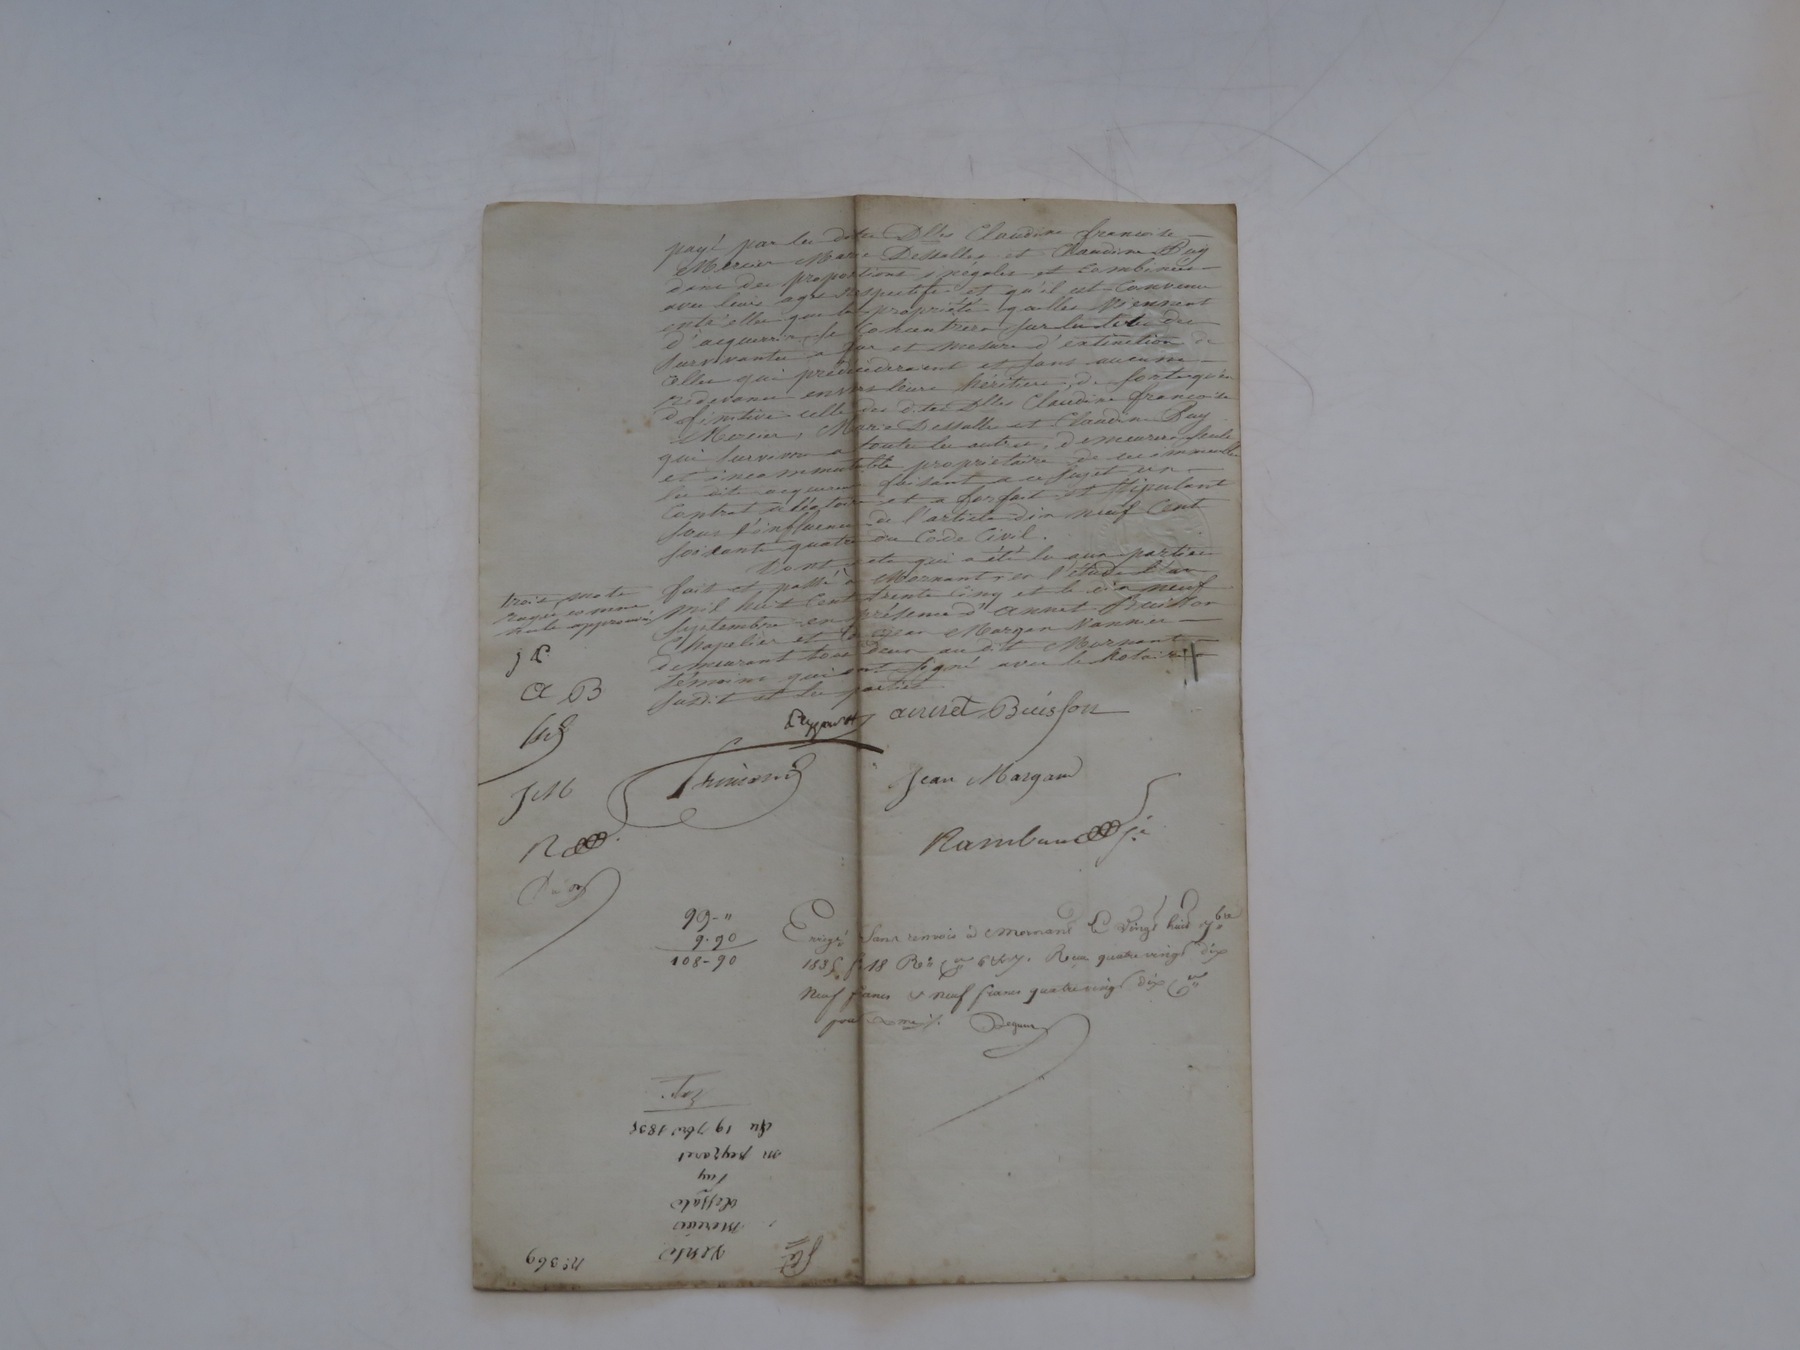 payé par les dites Dlles Claudine françoise
Mercier Marie Dessalle et Claudine Puy
dans des proportions inégales et combinées
avec leurs ages respectifs et qu'il est convenu
entr'elles que la propriété qu'elles viennent
d'acquerir se concentrera sur la tête des
survivantes a fur et mesure d'extinction de
celles qui prédécéderaient et sans aucune
redevance envers leurs héritiers, de sorte qu'en
définitive celle des dites Dlles Claudine françoise
Mercier, Marie Dessalle et Claudine Puy
qui survivra a toutes les autres, demeurera seule
et incommutable propriétaire de ces immeubles
les dits acquereurs faisant a ce sujet un
contrat aléatoire et a forfait et stipulant
sous l'influence de l'article dix neuf cent
soixante quatre du Code Civil.
Dont acte qui a été lu aux parties
fait et passé à Mornant en l'étude l'an
mil huit cent trente cinq et le dix neuf
septembre en présence d'annet Buisson
Chapelier et de Jean Margan Vannier
demeurant tous deux au dit Mornant
témoins qui ont signé avec le Notaire
susdit et les parties.
trois mots
rayés comme
nuls approuvés
J P.
A B
J M
R
annet Buisson
Jean Margand
Rambaud
99-"
9.90
108-90
Enrgé sans renvois à Mornant le vingt huit 7bre
1835 f. 18 Ro Reçu quatre vingt dix
neuf francs & neuf francs quatre vingt dix
pour
No 369
Vente
Mercier
Dessale
Puy
m peyzaret
du 19 7bre 1835